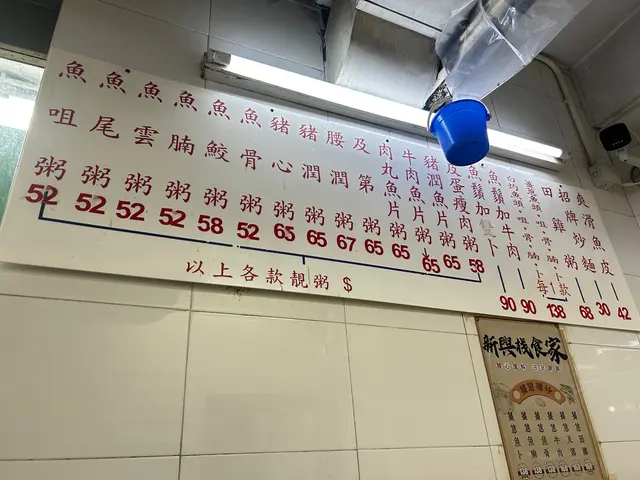 魚咀粥 52
魚尾粥 52
魚雲粥 52
魚腩粥 52
魚鮫粥 58
魚骨粥 52
豬心粥 65
豬潤粥 65
腰潤粥 67
及第粥 65
肉丸魚片粥 65
牛肉魚片粥 65
豬潤魚片粥 65
皮蛋瘦肉粥 58
以上各款靚粥 $
魚鬚加卜 90
魚鬚加牛肉 90
每1款 138
田雞粥 68
招牌炒麵 30
爽滑魚皮 42
新興棧食家